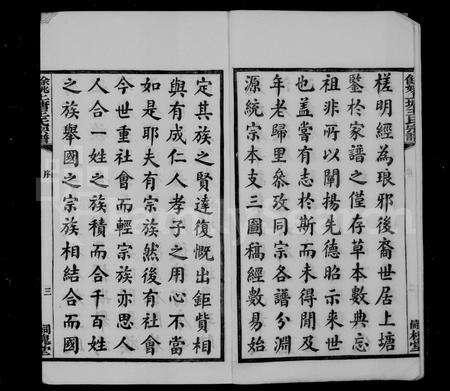 槎明經為瑯邪後裔世居上塘
鑒於家譜之僅存草本數典忘
祖非所以闡揚先德昭示來世
嘗有志於斯而未得閒及
年老歸里參攷同宗各譜分淵
源統宗本支三圖稿經數易始
定其族之賢達復慨出鉅貲相
與有成仁人孝子之用心不當
如是耶夫有宗族然後有社會
今世重社會而輕宗族亦思人
人合一姓之族積而合千百姓
之族舉國之宗族相結合而國
序
三